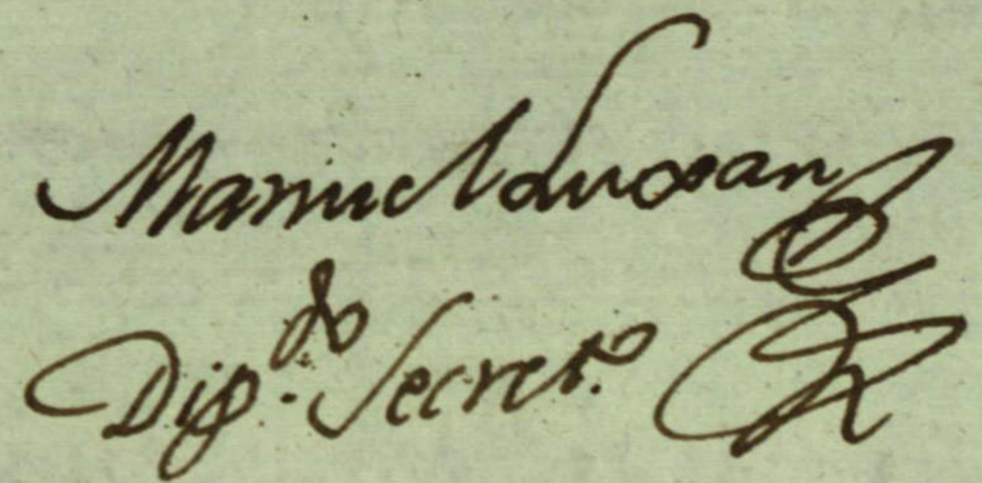 Manuel duran
Dip.do Secret.o